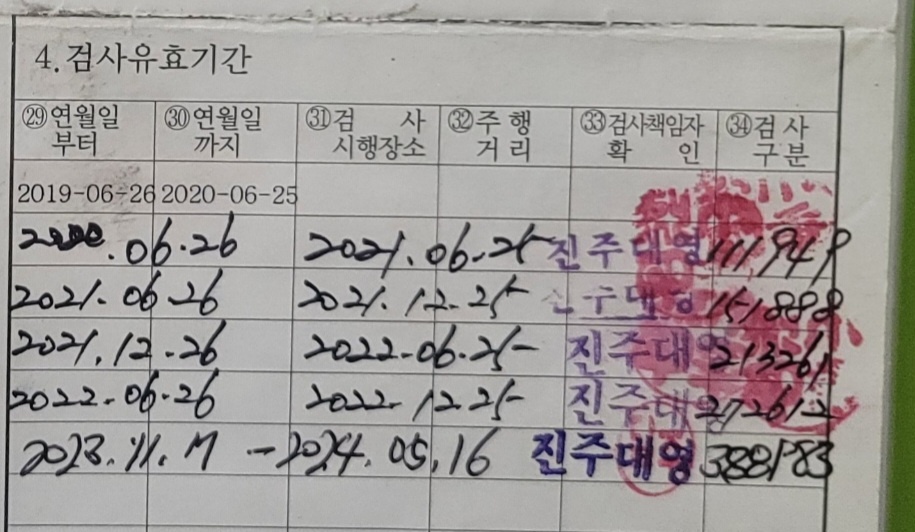 4. 검사유효기간
㉙연월일 부터 ㉚연월일 까지 ㉛검 사 시행장소 ㉜주 행 거 리 ㉝검사책임자 확 인 ㉞검 사 구 분
2019-06-26 2020-06-25
2020.06.26 2021.06.25 진주대영 111949
2021.06.26 2021.12.25 진주대영 151888
2021.12.26 2022.06.25 진주대영 213261
2022.06.26 2022.12.25 진주대영 272612
2023.11.17 - 2024.05.16 진주대영